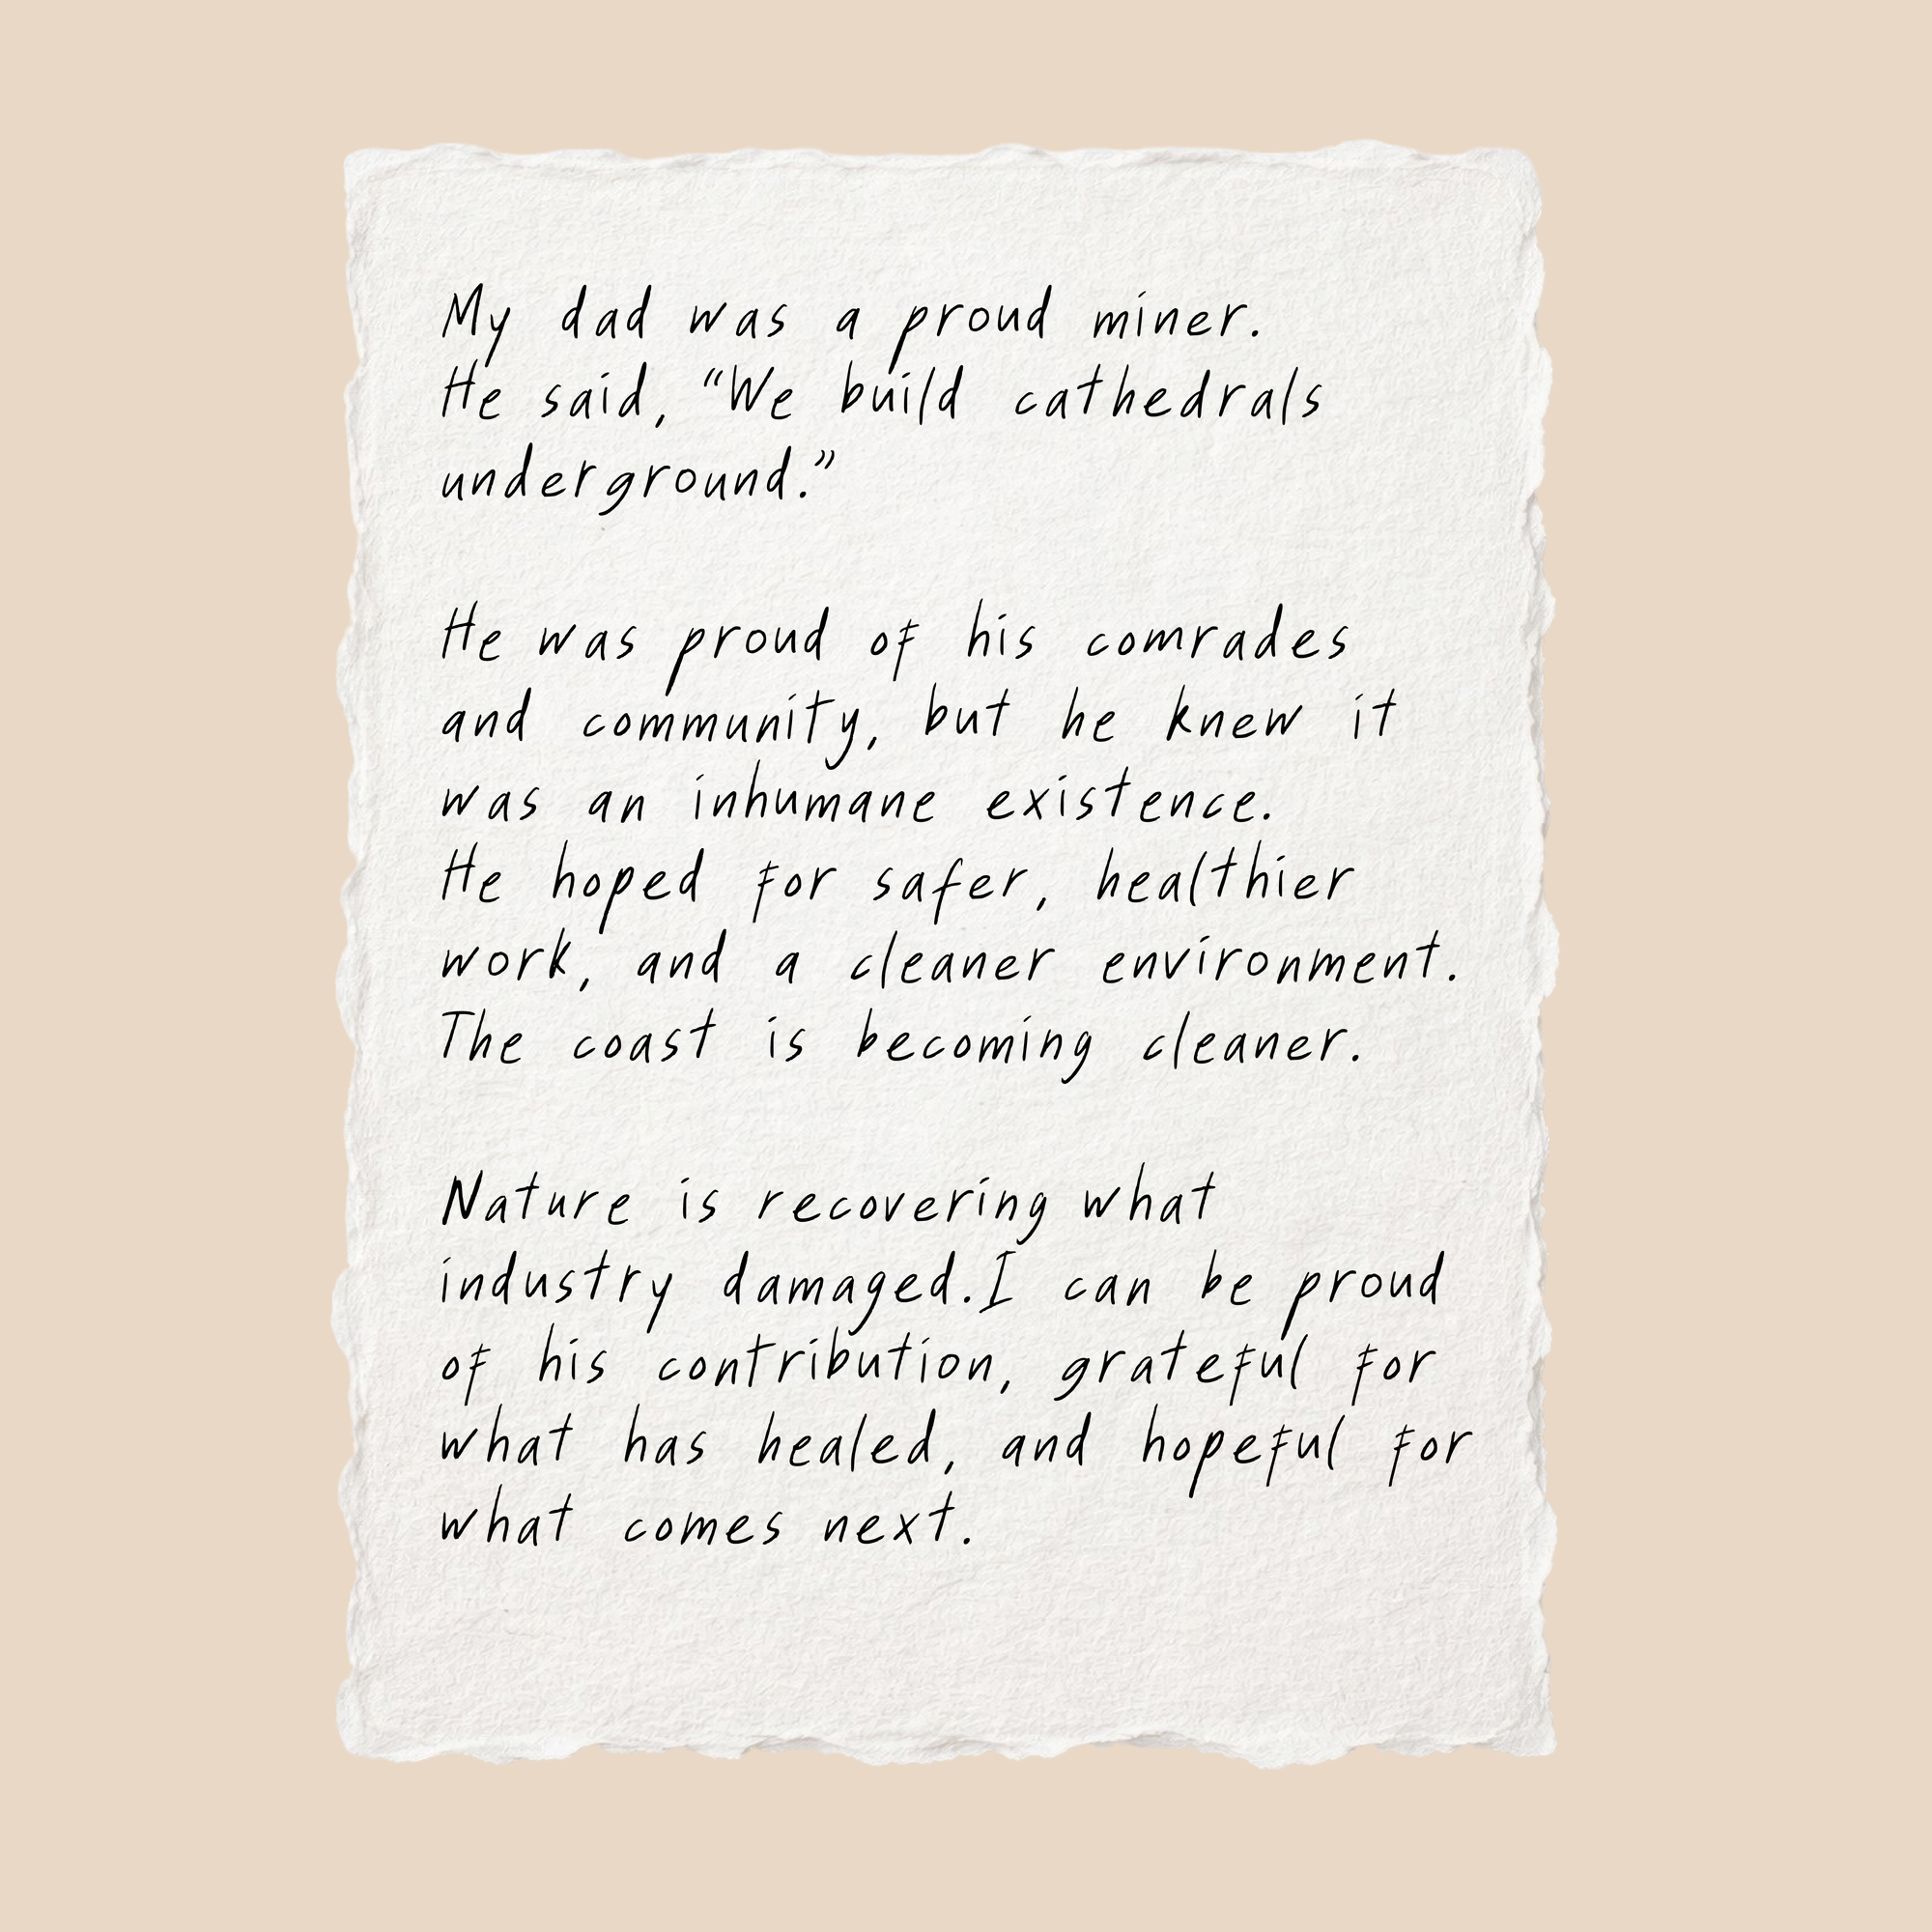 My dad was a proud miner.
He said, “We build cathedrals
underground.”
He was proud of his comrades
and community, but he knew it
was an inhumane existence.
He hoped for safer, healthier
work, and a cleaner environment.
The coast is becoming cleaner.
Nature is recovering what
industry damaged.I can be proud
of his contribution, grateful for
what has healed, and hopeful for
what comes next.